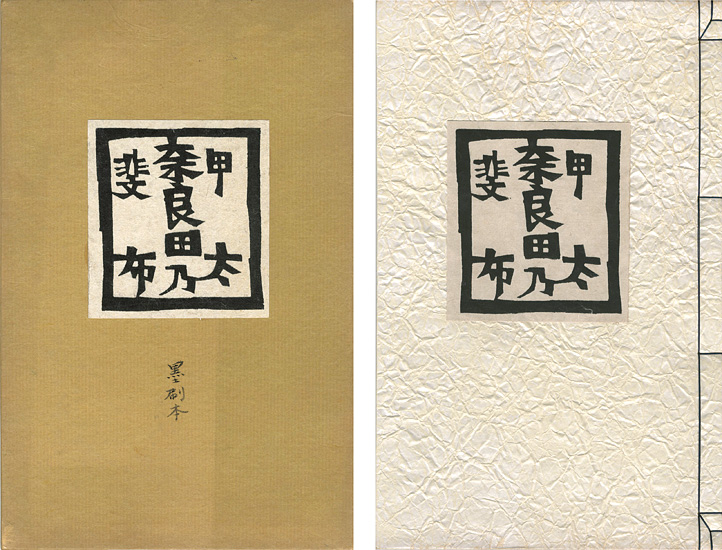 甲斐
奈良田乃
太布
墨刷本
甲斐
奈良田乃
太布